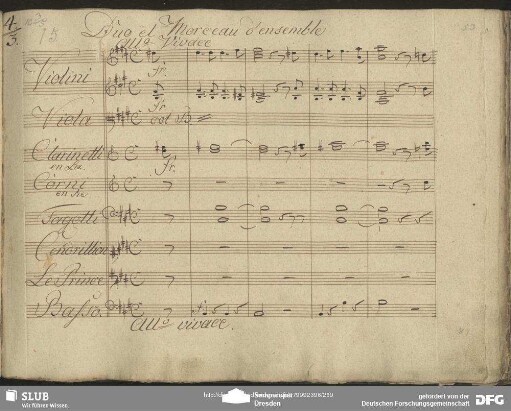 4.
3.
Duo et Morceau d'ensemble
All.º Vivace
Violini
Fr.
Fr.
Viola
col B
Clarinetti
en La
Fr.
Corni
Fagotti
Cendrillon
Le Prince
Basso.
All.º vivace.
SLUB
Wir führen Wissen.
Dresden
gefördert von der
Deutschen Forschungsgemeinschaft
DFG